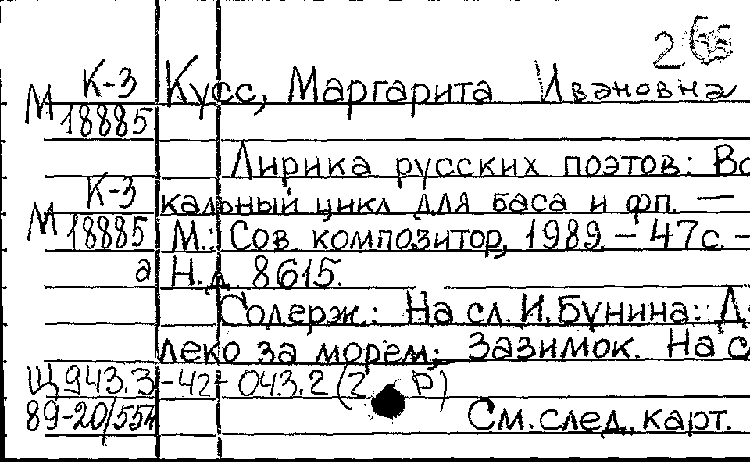 К-3 Кусс, Маргарита Ивановна
М 18885
Лирика русских поэтов: Во
К-3 кальный цикл для баса и фп. —
М 18885 М.: Сов. композитор, 1989 – 47с. –
а Н.д. 8615.
Содерж.: На сл. И. Бунина: Да
леко за морем; Зазимок. На с
Щ943.3-42-043.2(2 Р)
89-20/554 См. след. карт.